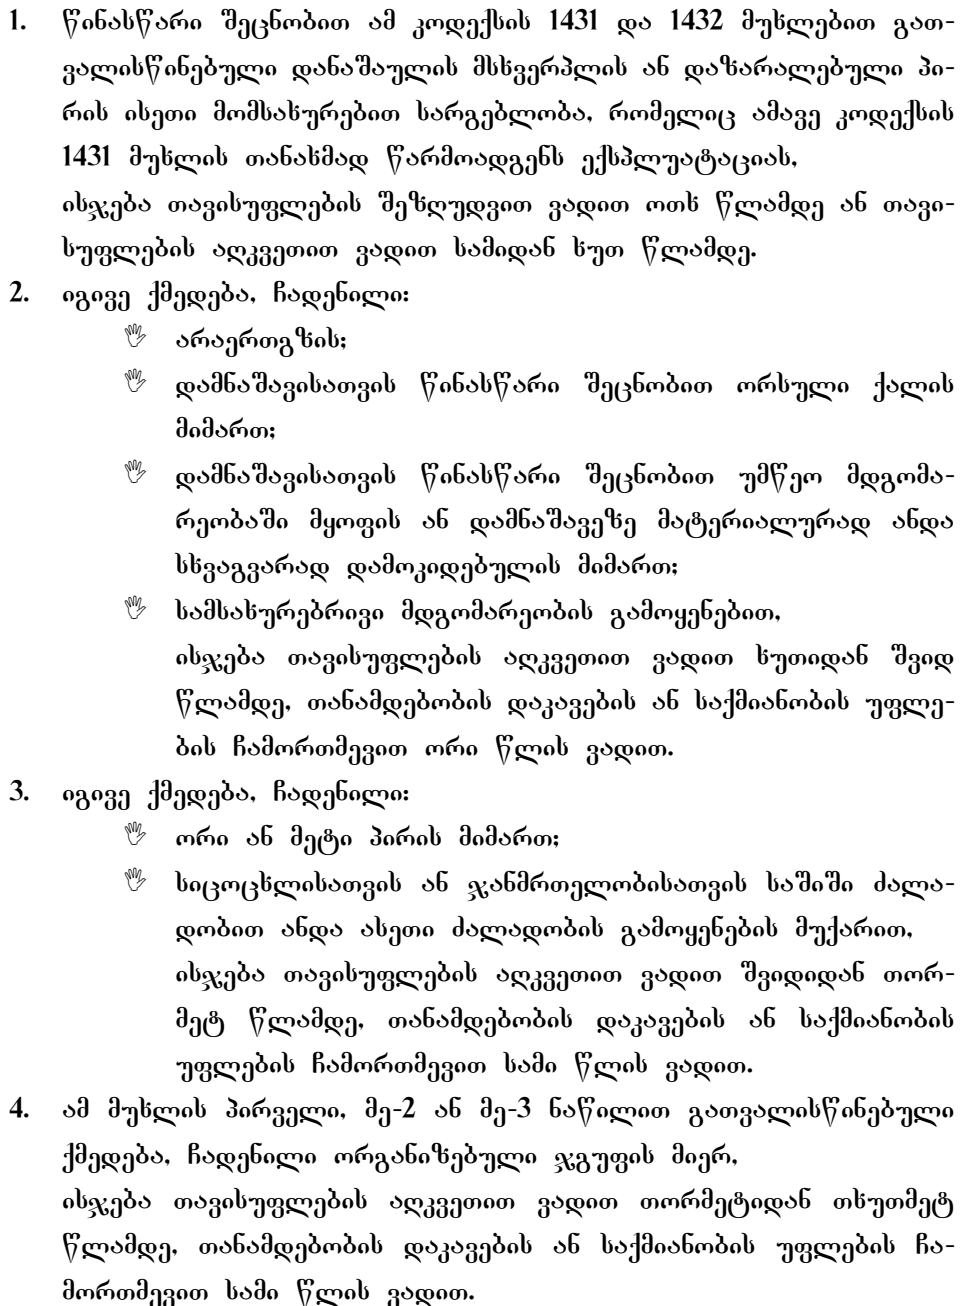 1. წინასწარი შეცნობით ამ კოდექსის 1431 და 1432 მუხლებით გათ-
ვალისწინებული დანაშაულის მსხვერპლის ან დაზარალებული პი-
რის ისეთი მომსახურებით სარგებლობა, რომელიც ამავე კოდექსის
1431 მუხლის თანახმად წარმოადგენს ექსპლუატაციას,
ისჯება თავისუფლების შეზღუდვით ვადით ოთხ წლამდე ან თავი-
სუფლების აღკვეთით ვადით სამიდან ხუთ წლამდე.
2. იგივე ქმედება, ჩადენილი:
🖑 არაერთგზის;
🖑 დამნაშავისათვის წინასწარი შეცნობით ორსული ქალის
მიმართ;
🖑 დამნაშავისათვის წინასწარი შეცნობით უმწეო მდგომა-
რეობაში მყოფის ან დამნაშავეზე მატერიალურად ანდა
სხვაგვარად დამოკიდებულის მიმართ;
🖑 სამსახურებრივი მდგომარეობის გამოყენებით,
ისჯება თავისუფლების აღკვეთით ვადით ხუთიდან შვიდ
წლამდე, თანამდებობის დაკავების ან საქმიანობის უფლე-
ბის ჩამორთმევით ორი წლის ვადით.
3. იგივე ქმედება, ჩადენილი:
🖑 ორი ან მეტი პირის მიმართ;
🖑 სიცოცხლისათვის ან ჯანმრთელობისათვის საშიში ძალა-
დობით ანდა ასეთი ძალადობის გამოყენების მუქარით,
ისჯება თავისუფლების აღკვეთით ვადით შვიდიდან თორ-
მეტ წლამდე, თანამდებობის დაკავების ან საქმიანობის
უფლების ჩამორთმევით სამი წლის ვადით.
4. ამ მუხლის პირველი, მე-2 ან მე-3 ნაწილით გათვალისწინებული
ქმედება, ჩადენილი ორგანიზებული ჯგუფის მიერ,
ისჯება თავისუფლების აღკვეთით ვადით თორმეტიდან თხუთმეტ
წლამდე, თანამდებობის დაკავების ან საქმიანობის უფლების ჩა-
მორთმევით სამი წლის ვადით.